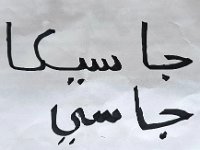 جاسيكا
جاسي